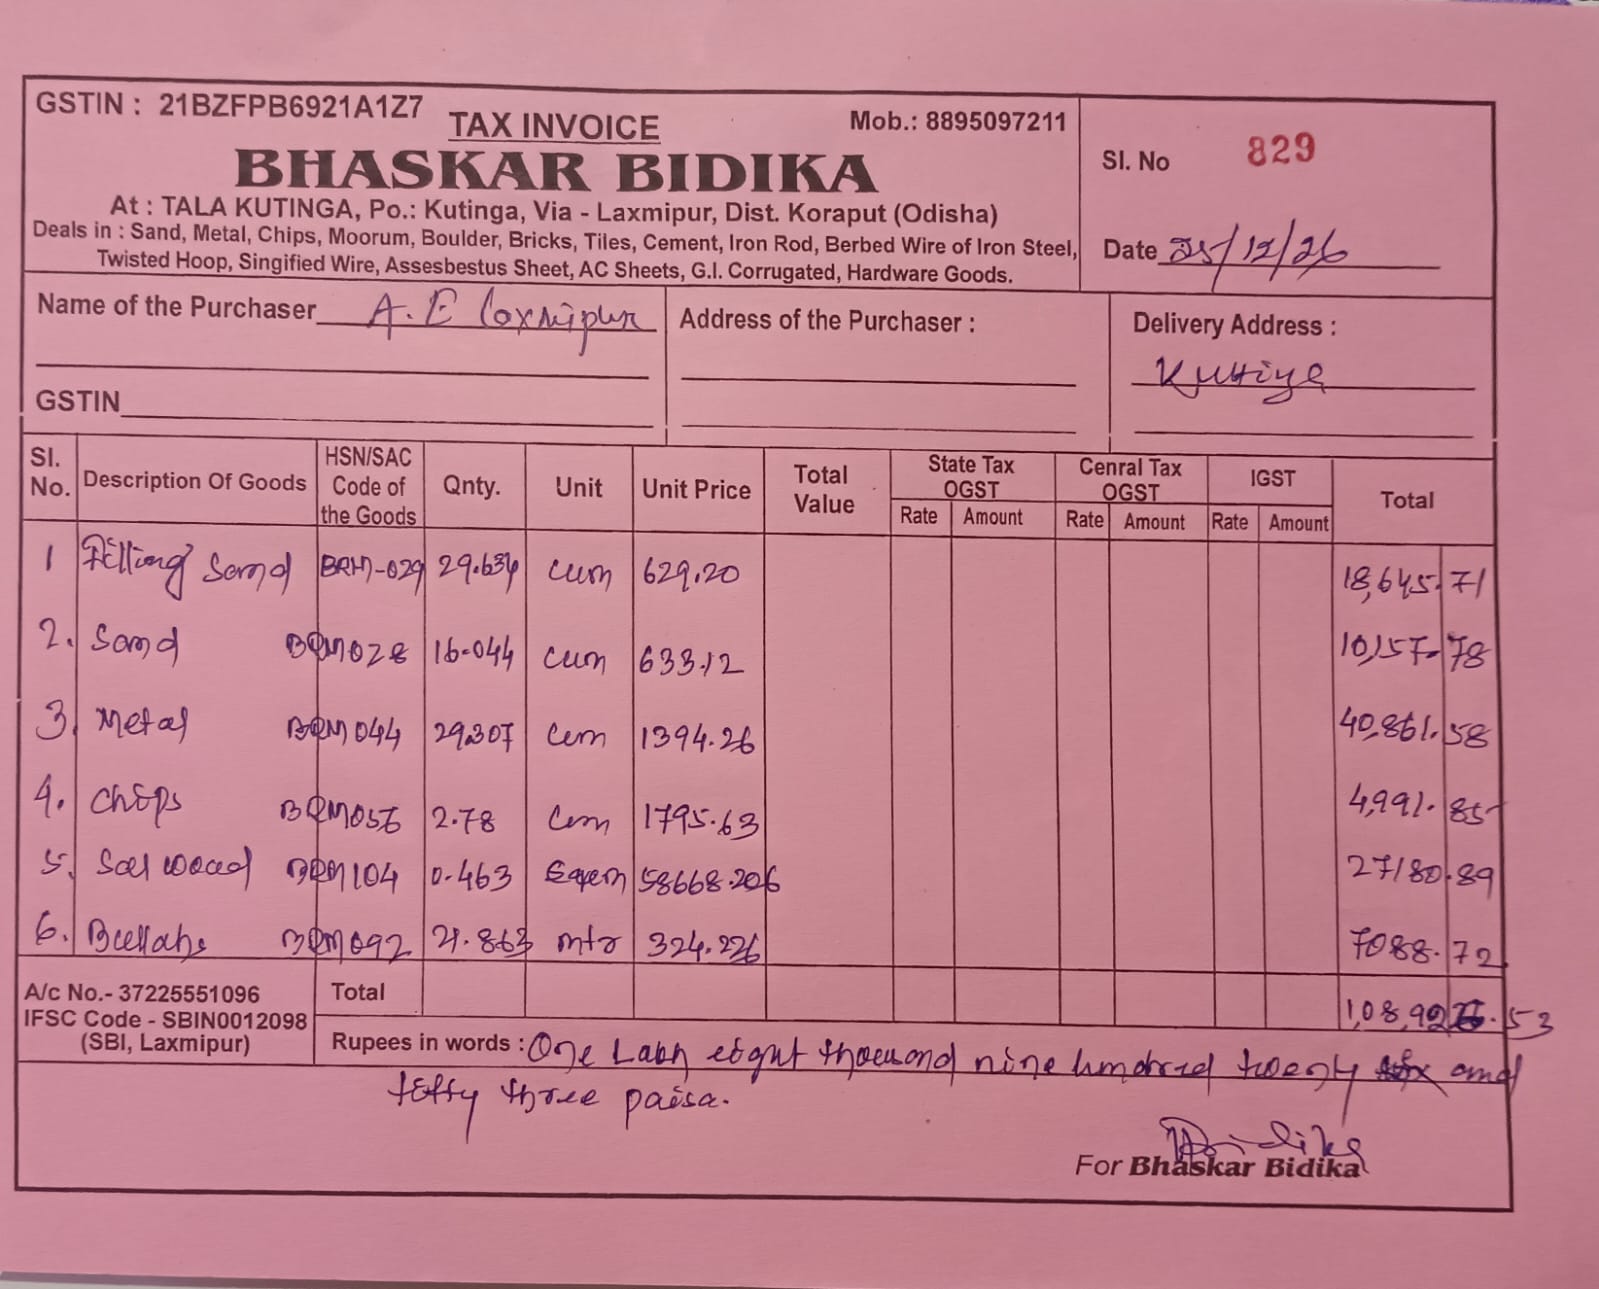 GSTIN : 21BZFPB6921A1Z7
TAX INVOICE
Mob.: 8895097211
BHASKAR BIDIKA
At : TALA KUTINGA, Po.: Kutinga, Via - Laxmipur, Dist. Koraput (Odisha)
Deals in : Sand, Metal, Chips, Moorum, Boulder, Bricks, Tiles, Cement, Iron Rod, Berbed Wire of Iron Steel,
Twisted Hoop, Singified Wire, Assesbestus Sheet, AC Sheets, G.I. Corrugated, Hardware Goods.
SI. No 829
Date 25/12/26
Name of the Purchaser A.E Laxmipur
Address of the Purchaser :
Delivery Address :
GSTIN
SI. No. Description Of Goods HSN/SAC Code of the Goods Qnty. Unit Unit Price Total Value State Tax OGST Cenral Tax OGST IGST Total
Rate Amount Rate Amount Rate Amount
1 Filling Sand BRM-029 29.634 cum 629.20 18,645.71
2. Sand BRM028 16.044 cum 633.12 10,157.78
3. Metal BRM044 29.307 cum 1394.26 40,861.58
4. Chips BRM056 2.78 cum 1795.63 4,991.85
5. Sal wood BRM104 0.463 58668.206 27180.89
6. Bullahs BRM092 21.863 mtr 324.226 7088.72
A/c No.- 37225551096
IFSC Code - SBIN0012098
(SBI, Laxmipur)
Total 1,08,926.53
Rupees in words : One Lakh eight thousand nine hundred twenty six and
fifty three paisa.
Bidika
For Bhaskar Bidika